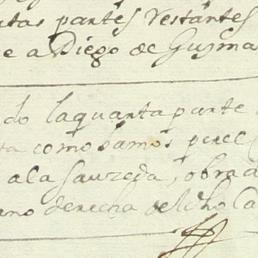 partes restantes
e a Diego de Gusma
do la quarta parte
como Samos
a la Sauzeda, obra d
ano derecha del dho Ca